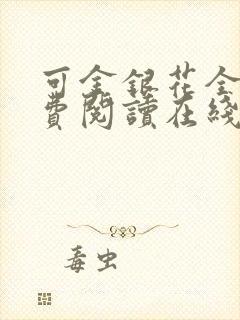 可金銀花全
費閱讀在綫
毒虫